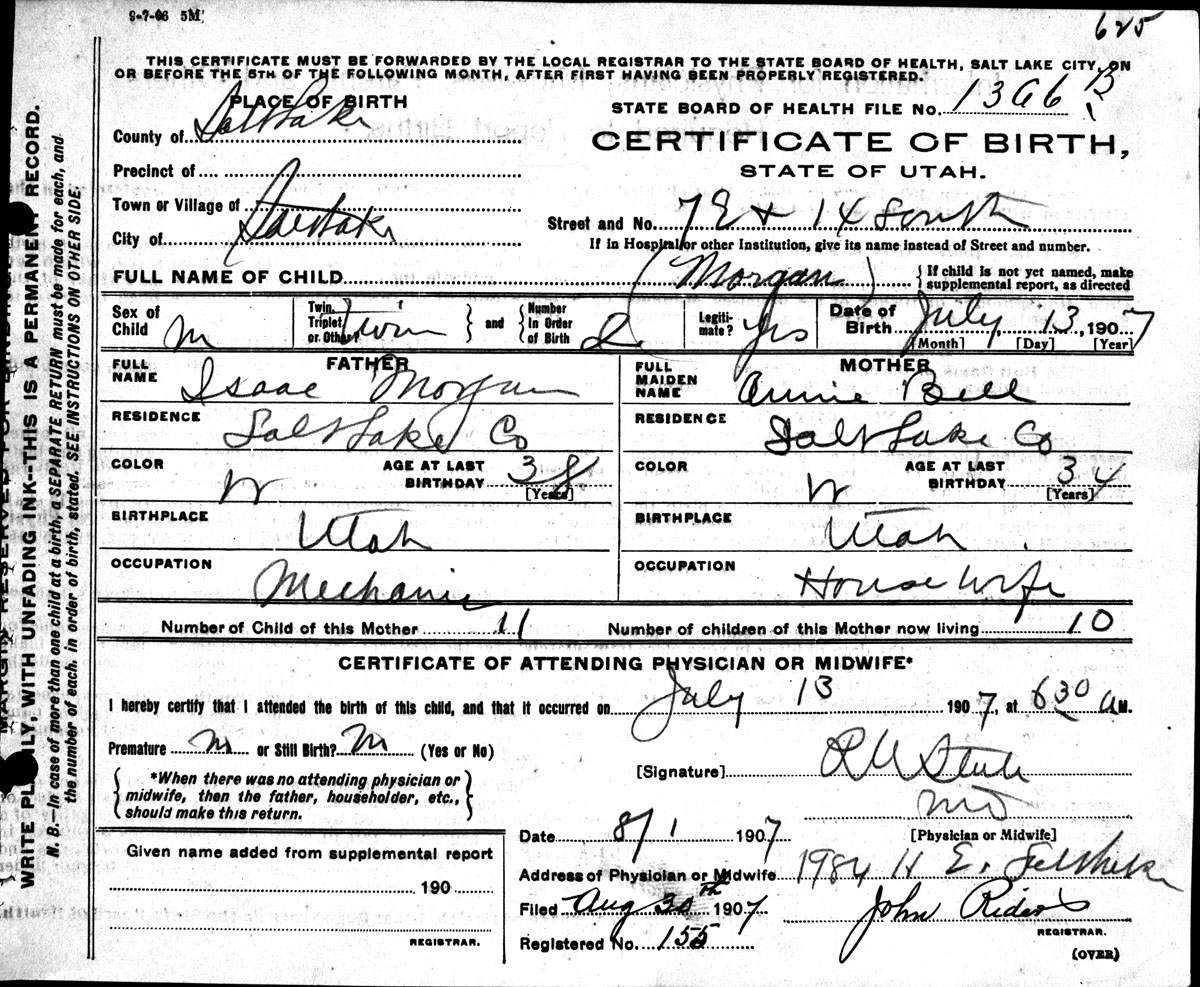 9-7-06 5M
625
THIS CERTIFICATE MUST BE FORWARDED BY THE LOCAL REGISTRAR TO THE STATE BOARD OF HEALTH, SALT LAKE CITY, ON
OR BEFORE THE 5TH OF THE FOLLOWING MONTH, AFTER FIRST HAVING BEEN PROPERLY REGISTERED.
PLACE OF BIRTH
County of Salt Lake
Precinct of
Town or Village of
City of Salt Lake
STATE BOARD OF HEALTH FILE No. B
CERTIFICATE OF BIRTH,
STATE OF UTAH.
Street and No. 7 E & 14 South
If in Hospital or other Institution, give its name instead of Street and number.
FULL NAME OF CHILD (Morgan) { If child is not yet named, make
supplemental report, as directed
Sex of Child M
Twin, Triplet, or Other? Twin } and { Number in Order of Birth 2
Legiti-mate? Yes
Date of Birth July 13, 1907
[Month] [Day] [Year]
FATHER
FULL NAME Isaac Morgan
RESIDENCE Salt Lake Co
COLOR W
AGE AT LAST BIRTHDAY 38
[Years]
BIRTHPLACE Utah
OCCUPATION Mechanic
MOTHER
FULL MAIDEN NAME Annie Bell
RESIDENCE Salt Lake Co
COLOR W
AGE AT LAST BIRTHDAY 34
[Years]
BIRTHPLACE Utah
OCCUPATION House Wife
Number of Child of this Mother 11
Number of children of this Mother now living 10
CERTIFICATE OF ATTENDING PHYSICIAN OR MIDWIFE*
I hereby certify that I attended the birth of this child, and that it occurred on July 13 1907, at 6 30 a M.
Premature or Still Birth? (Yes or No)
{ *When there was no attending physician or
midwife, then the father, householder, etc.,
should make this return. }
[Signature]
MD
[Physician or Midwife]
Date 8/1 1907
Address of Physician or Midwife 1984 11 E.
Filed Aug 30th 1907
John Rider
REGISTRAR.
Registered No. 155
(OVER)
Given name added from supplemental report
190
REGISTRAR.
MARGIN RESERVED FOR BINDING
WRITE PLAINLY, WITH UNFADING INK--THIS IS A PERMANENT RECORD.
N. B.—In case of more than one child at a birth, a SEPARATE RETURN must be made for each, and
the number of each, in order of birth, stated. SEE INSTRUCTIONS ON OTHER SIDE.